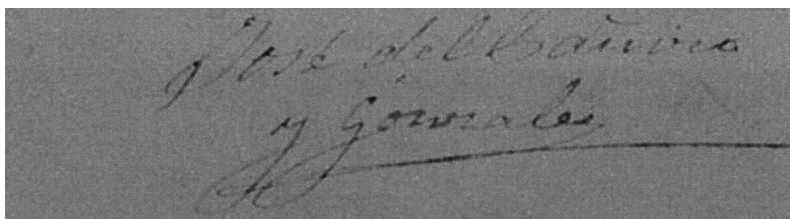 José del Camino
y Gonzales